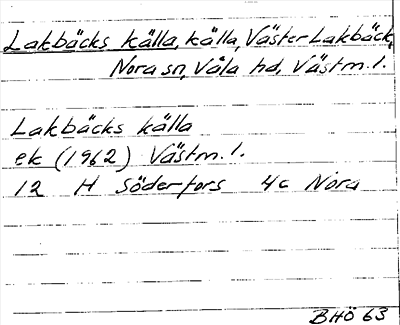 Lakbäcks källa, källa, Väster Lakbäck,
Nora sn, Våla hd, Västm. l.
Lakbäcks källa
ek (1962) Västm. l.
12 H Söderfors 4c Nora
BHÖ 63